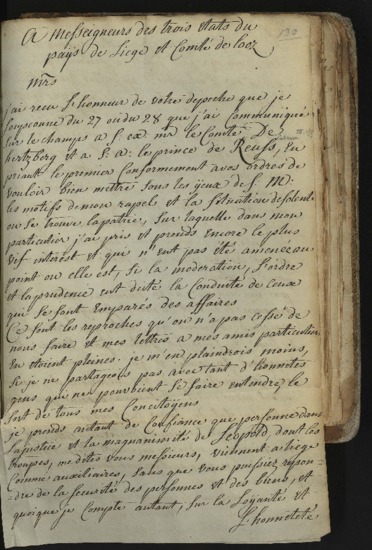 A Messeigneurs des trois etats du
pays de Liege et Comté de looz
130
Mrs
j'ai recu l'honneur de votre depeche que je
soupconne du 27 ou du 28 que j'ai communiqué
sur le champs a S. ex. mr le Comte De
hertzberg et a S: a: le prince de Reuss, en
priant le premier Conformement a vos ordres de
vouloir bien mettre sous les yeux de S. M:
les motifs de mon rapel et la situation desolente
ou se trouve la patrie, sur laquelle dans mon
particulier j'ai pris et prends encore le plus
vif interest et qui n'eut pas été amenee au
point ou elle est, si la moderation, l'ordre
et la prudence eut dicté la Conduite de ceux
qui se sont emparés des affaires
Ce sont les reproches qu'on n'a pas cessé de
nous faire et mes lettres a mes amis particuliers
en etoient pleines. je m'en plaindrois moins,
si je ne partageois pas avec tant d'honnetes
gens qui ne pouvoient se faire entendre, le
sort de tous mes Concitoyens
je prends autant de Confiance que personne dans
la justice et la magnanimité de Leopold dont les
troupes, me dites vous messieurs, viennent a liege
Comme auxiliaires, sans que vous puissiez repon-
-dre de la securité des personnes et des biens, et
quoique je Compte autant, sur la Loyauté et
L'honnêteté